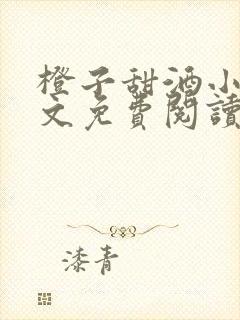 橙子甜酒小
文免費閱讀
漆青